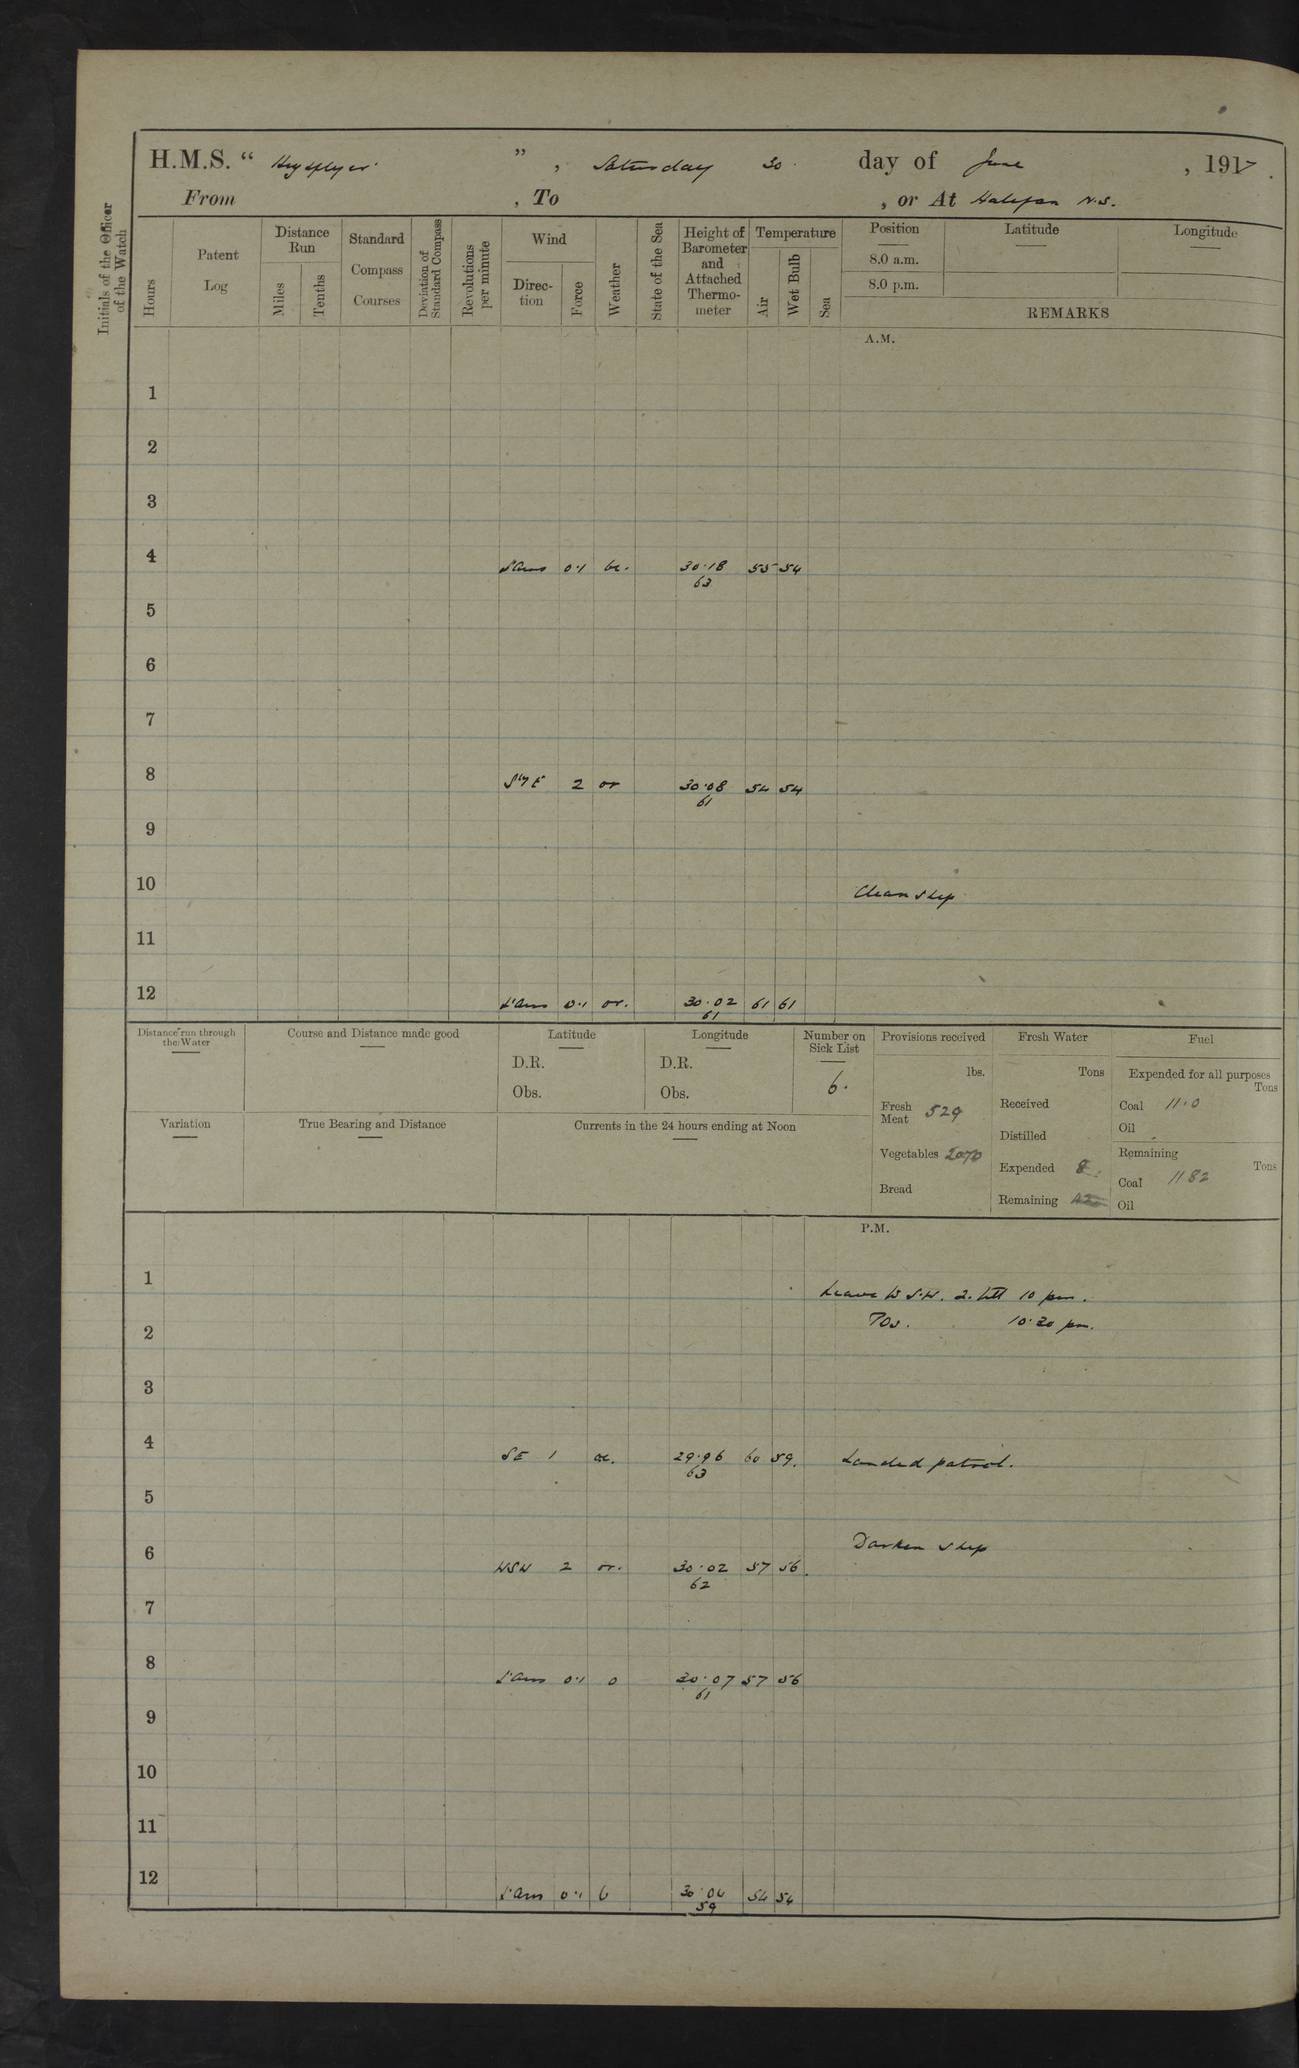 H.M.S. " Highflyer " , Saturday 30 day of June , 1917.
From , To , or At Halifax N.S.
Initials of the Officer of the Watch
Hours
Patent Log
Distance Run
Miles
Tenths
Standard Compass Courses
Deviation of Standard Compass
Revolutions per minute
Wind
Direction
Force
Weather
State of the Sea
Height of Barometer and Attached Thermometer
Temperature
Air
Wet Bulb
Sea
Position
8.0 a.m.
8.0 p.m.
Latitude
Longitude
REMARKS
A.M.
1
2
3
4 0.1 bc. 30.18 55 54
63
5
6
7
8 2 or 30.08 54 54
61
9
10 Clean Ship
11
12 0.1 or. 30.02 61 61
61
Distance run through the Water
Course and Distance made good
Latitude
D.R.
Obs.
Longitude
D.R.
Obs.
Number on Sick List
6.
Provisions received
lbs.
Fresh Meat 529
Vegetables 2070
Bread
Fresh Water
Tons
Received
Distilled
Expended 8
Remaining
Fuel
Expended for all purposes
Tons
Coal 11.0
Oil
Remaining
Tons
Coal 1182
Oil
Variation
True Bearing and Distance
Currents in the 24 hours ending at Noon
P.M.
1 Leave to till 10 pm.
2 POs. 10.30 pm.
3
4 SE 1 oc. 29.96 60 59. Landed patrol.
63
5
6 WSW 2 or. 30.02 57 56. Darken Ship
62
7
8 0.1 o 30.07 57 56
61
9
10
11
12 0.1 b 30.04 54 54
59